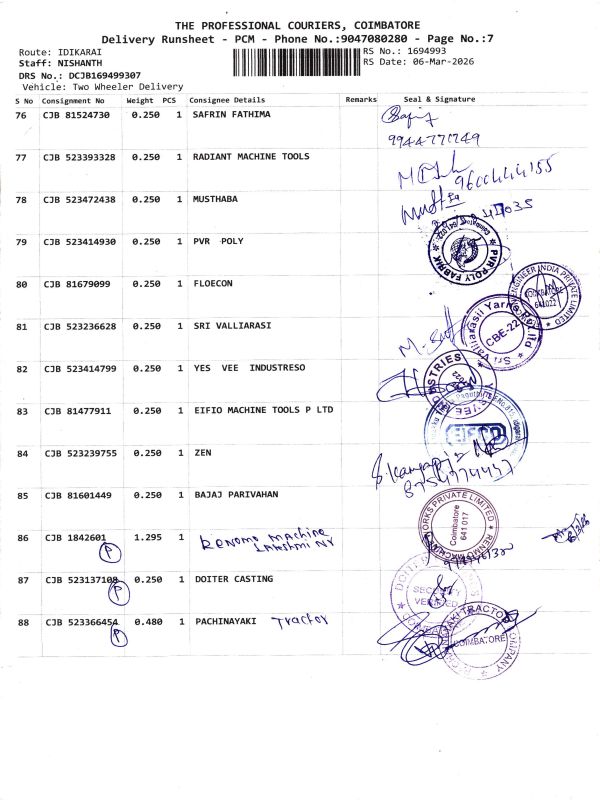 THE PROFESSIONAL COURIERS, COIMBATORE
Delivery Runsheet - PCM - Phone No.:9047080280 - Page No.:7
Route: IDIKARAI
RS No.: 1694993
Staff: NISHANTH
RS Date: 06-Mar-2026
DRS No.: DCJB169499307
Vehicle: Two Wheeler Delivery
S No Consignment No Weight PCS Consignee Details Remarks Seal & Signature
76 CJB 81524730 0.250 1 SAFRIN FATHIMA
77 CJB 523393328 0.250 1 RADIANT MACHINE TOOLS
9600444155
78 CJB 523472438 0.250 1 MUSTHABA
79 CJB 523414930 0.250 1 PVR POLY
PVR POLY FABRIK
80 CJB 81679099 0.250 1 FLOECON
ENGINEER INDIA PRIVATE LIMITED
641022
81 CJB 523236628 0.250 1 SRI VALLIARASI
CBE-22
82 CJB 523414799 0.250 1 YES VEE INDUSTRESO
83 CJB 81477911 0.250 1 EIFIO MACHINE TOOLS P LTD
84 CJB 523239755 0.250 1 ZEN
85 CJB 81601449 0.250 1 BAJAJ PARIVAHAN
86 CJB 1842601 1.295 1 Renomo Machine
P
WORKS PRIVATE LIMITED
Coimbatore
641 017
87 CJB 523137108 0.250 1 DOITER CASTING
P
88 CJB 523366454 0.480 1 PACHINAYAKI Tractor
P
COIMBATORE